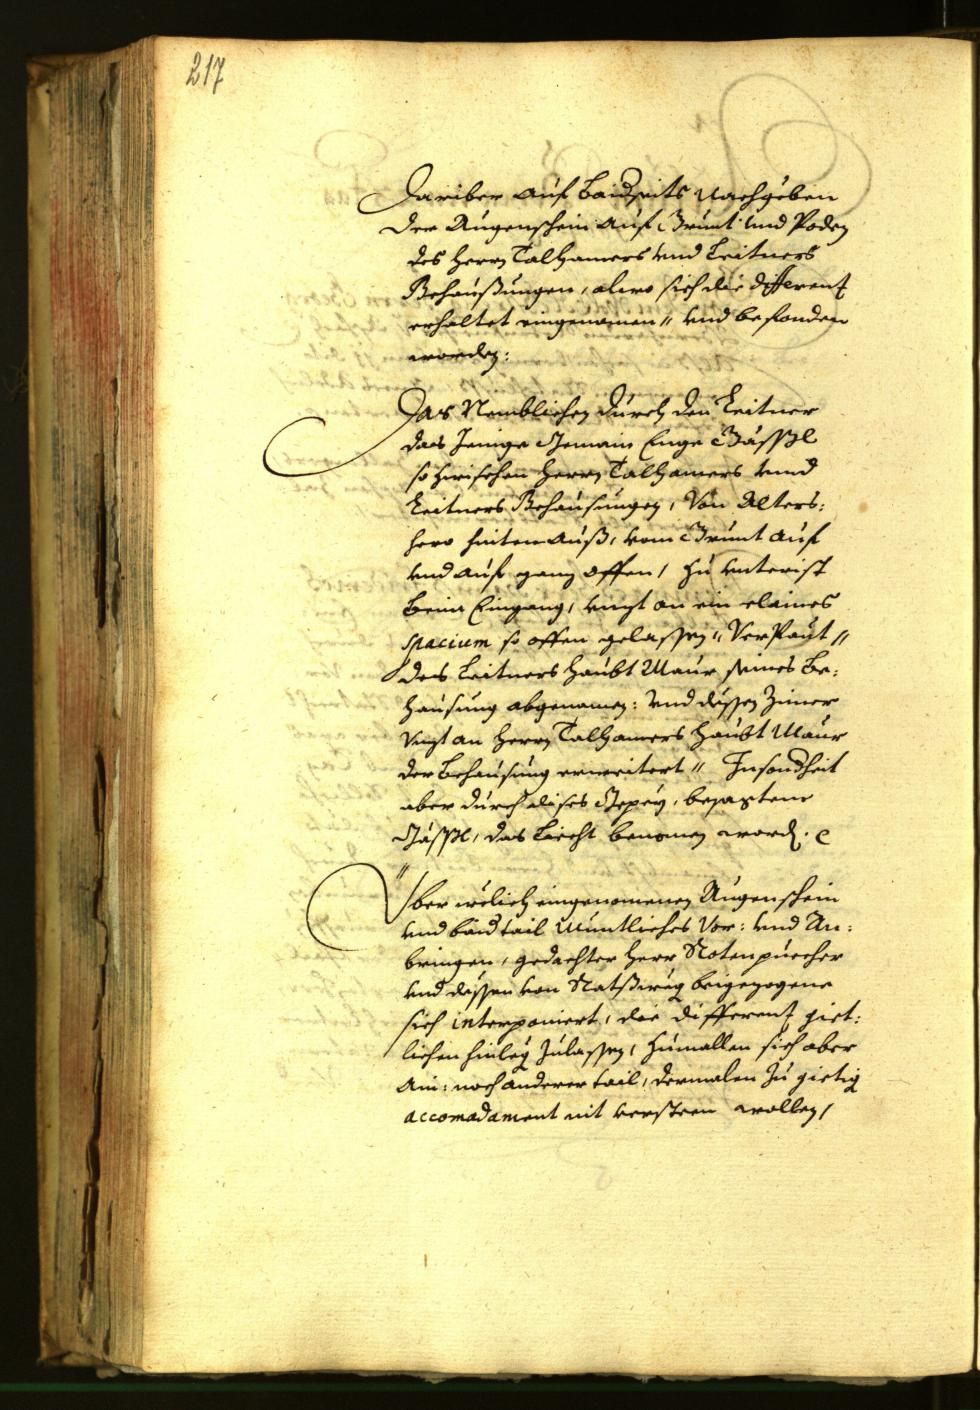 217
Dariber auf baidseits nachgeben
der Augenschein auf Grunt und Poden
des Herrn Talhamers und Leitners
Behausungen, alwo sich die differenz
erhaltet eingenomen // und befonden
worden:
Das Nemblichen durch den Leitner
das Jenige Gemain Enge Gässl
so zwischen Herrn Talhamers unnd
Leitners Behausungen, Von Alters:
hero hinten auß, vom Grunt auf
und auf ganz offen, zu unterist
beim Eingang, unzt an ein claines
spacium so offen gelassen // Verpaut //
des Leitners Haubt Maur seines Be:
hausung abgenomen: und dessen Zimer
Unzt an Herrn Talhamers Haubt Maur
der Behausung erweitert // Insondheit
aber durch dises Gepey,
Gässl, das Liecht benomen word. c
Yber welich eingenomenen Augenschein
und baid tail Muntliches Vor: und An:
bringen, gedachter Herr Notenpuecher
und dessen von Ratßweg beigezogene
sich interponiert, die differenz giet:
lichen hinleg zulassen, zumallen sich aber
Ain: noch anderer tail, dermalen zu gietig
accomadament nit versteen wollen,